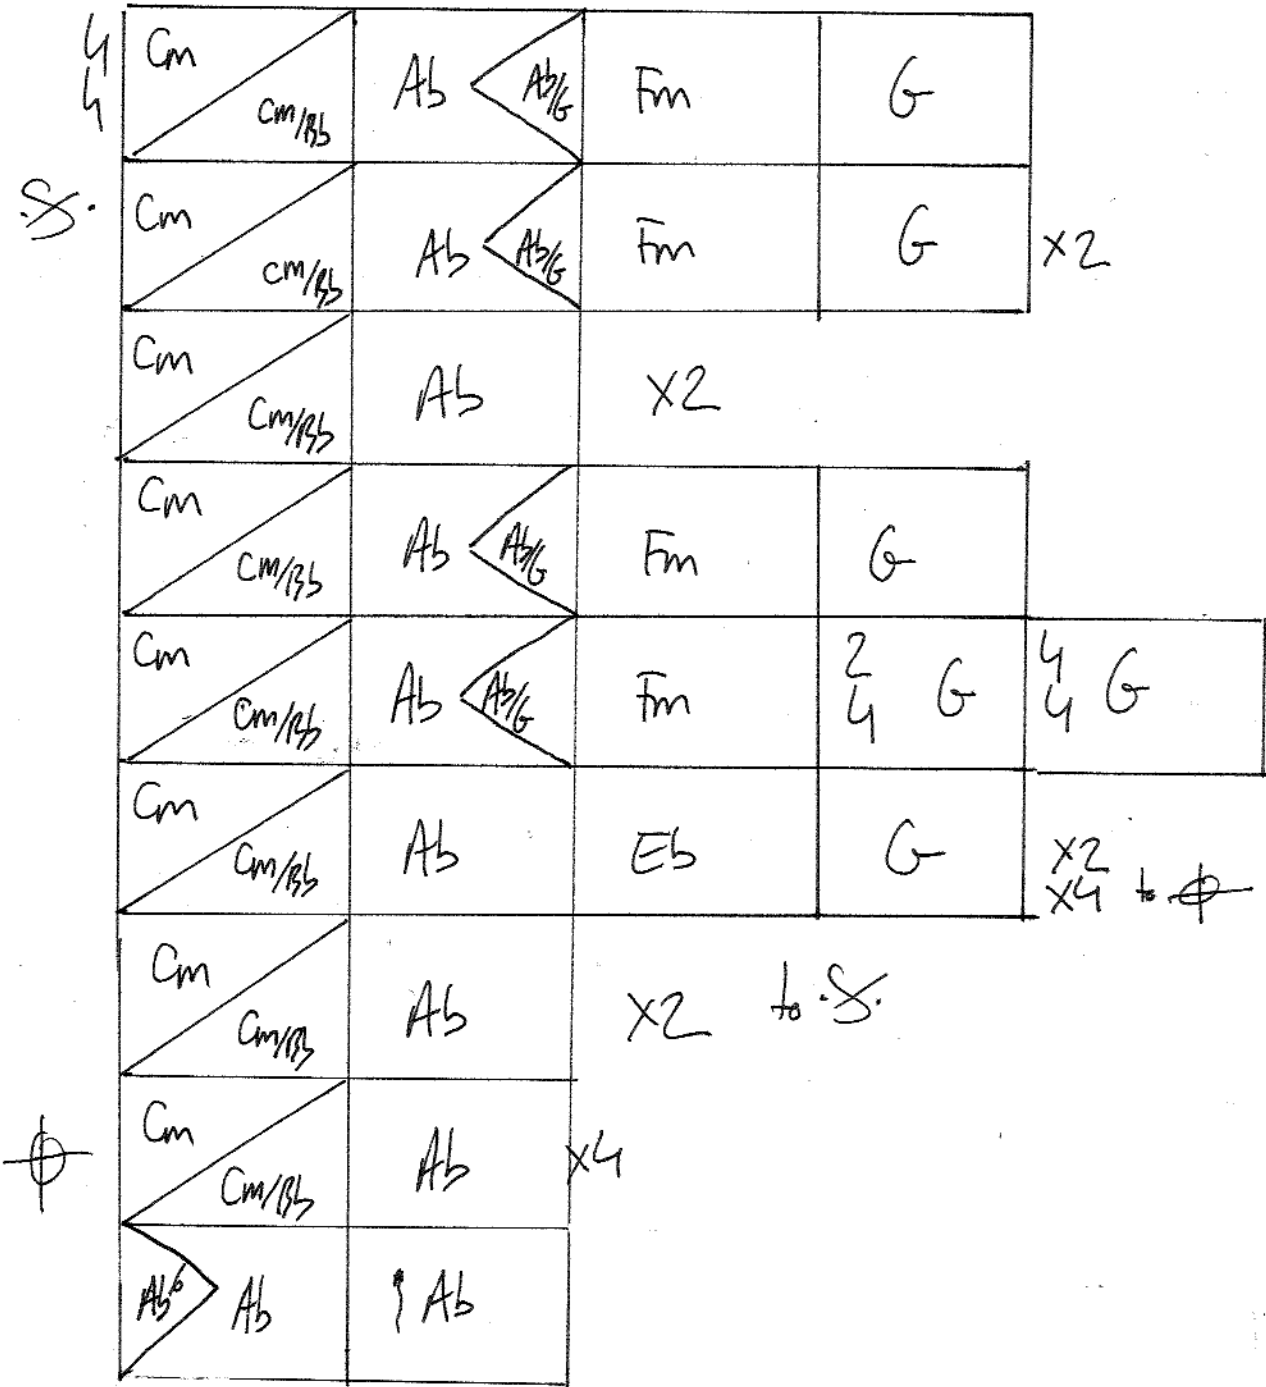 4/4 Cm Cm/Bb Ab Ab/G Fm G
𝄋 Cm Cm/Bb Ab Ab/G Fm G x2
Cm Cm/Bb Ab x2
Cm Cm/Bb Ab Ab/G Fm G
Cm Cm/Bb Ab Ab/G Fm 2/4 G 4/4 G
Cm Cm/Bb Ab Eb G x2
x4 to 𝄌
Cm Cm/Bb Ab x2 to 𝄋
𝄌 Cm Cm/Bb Ab x4
Ab6 Ab Ab